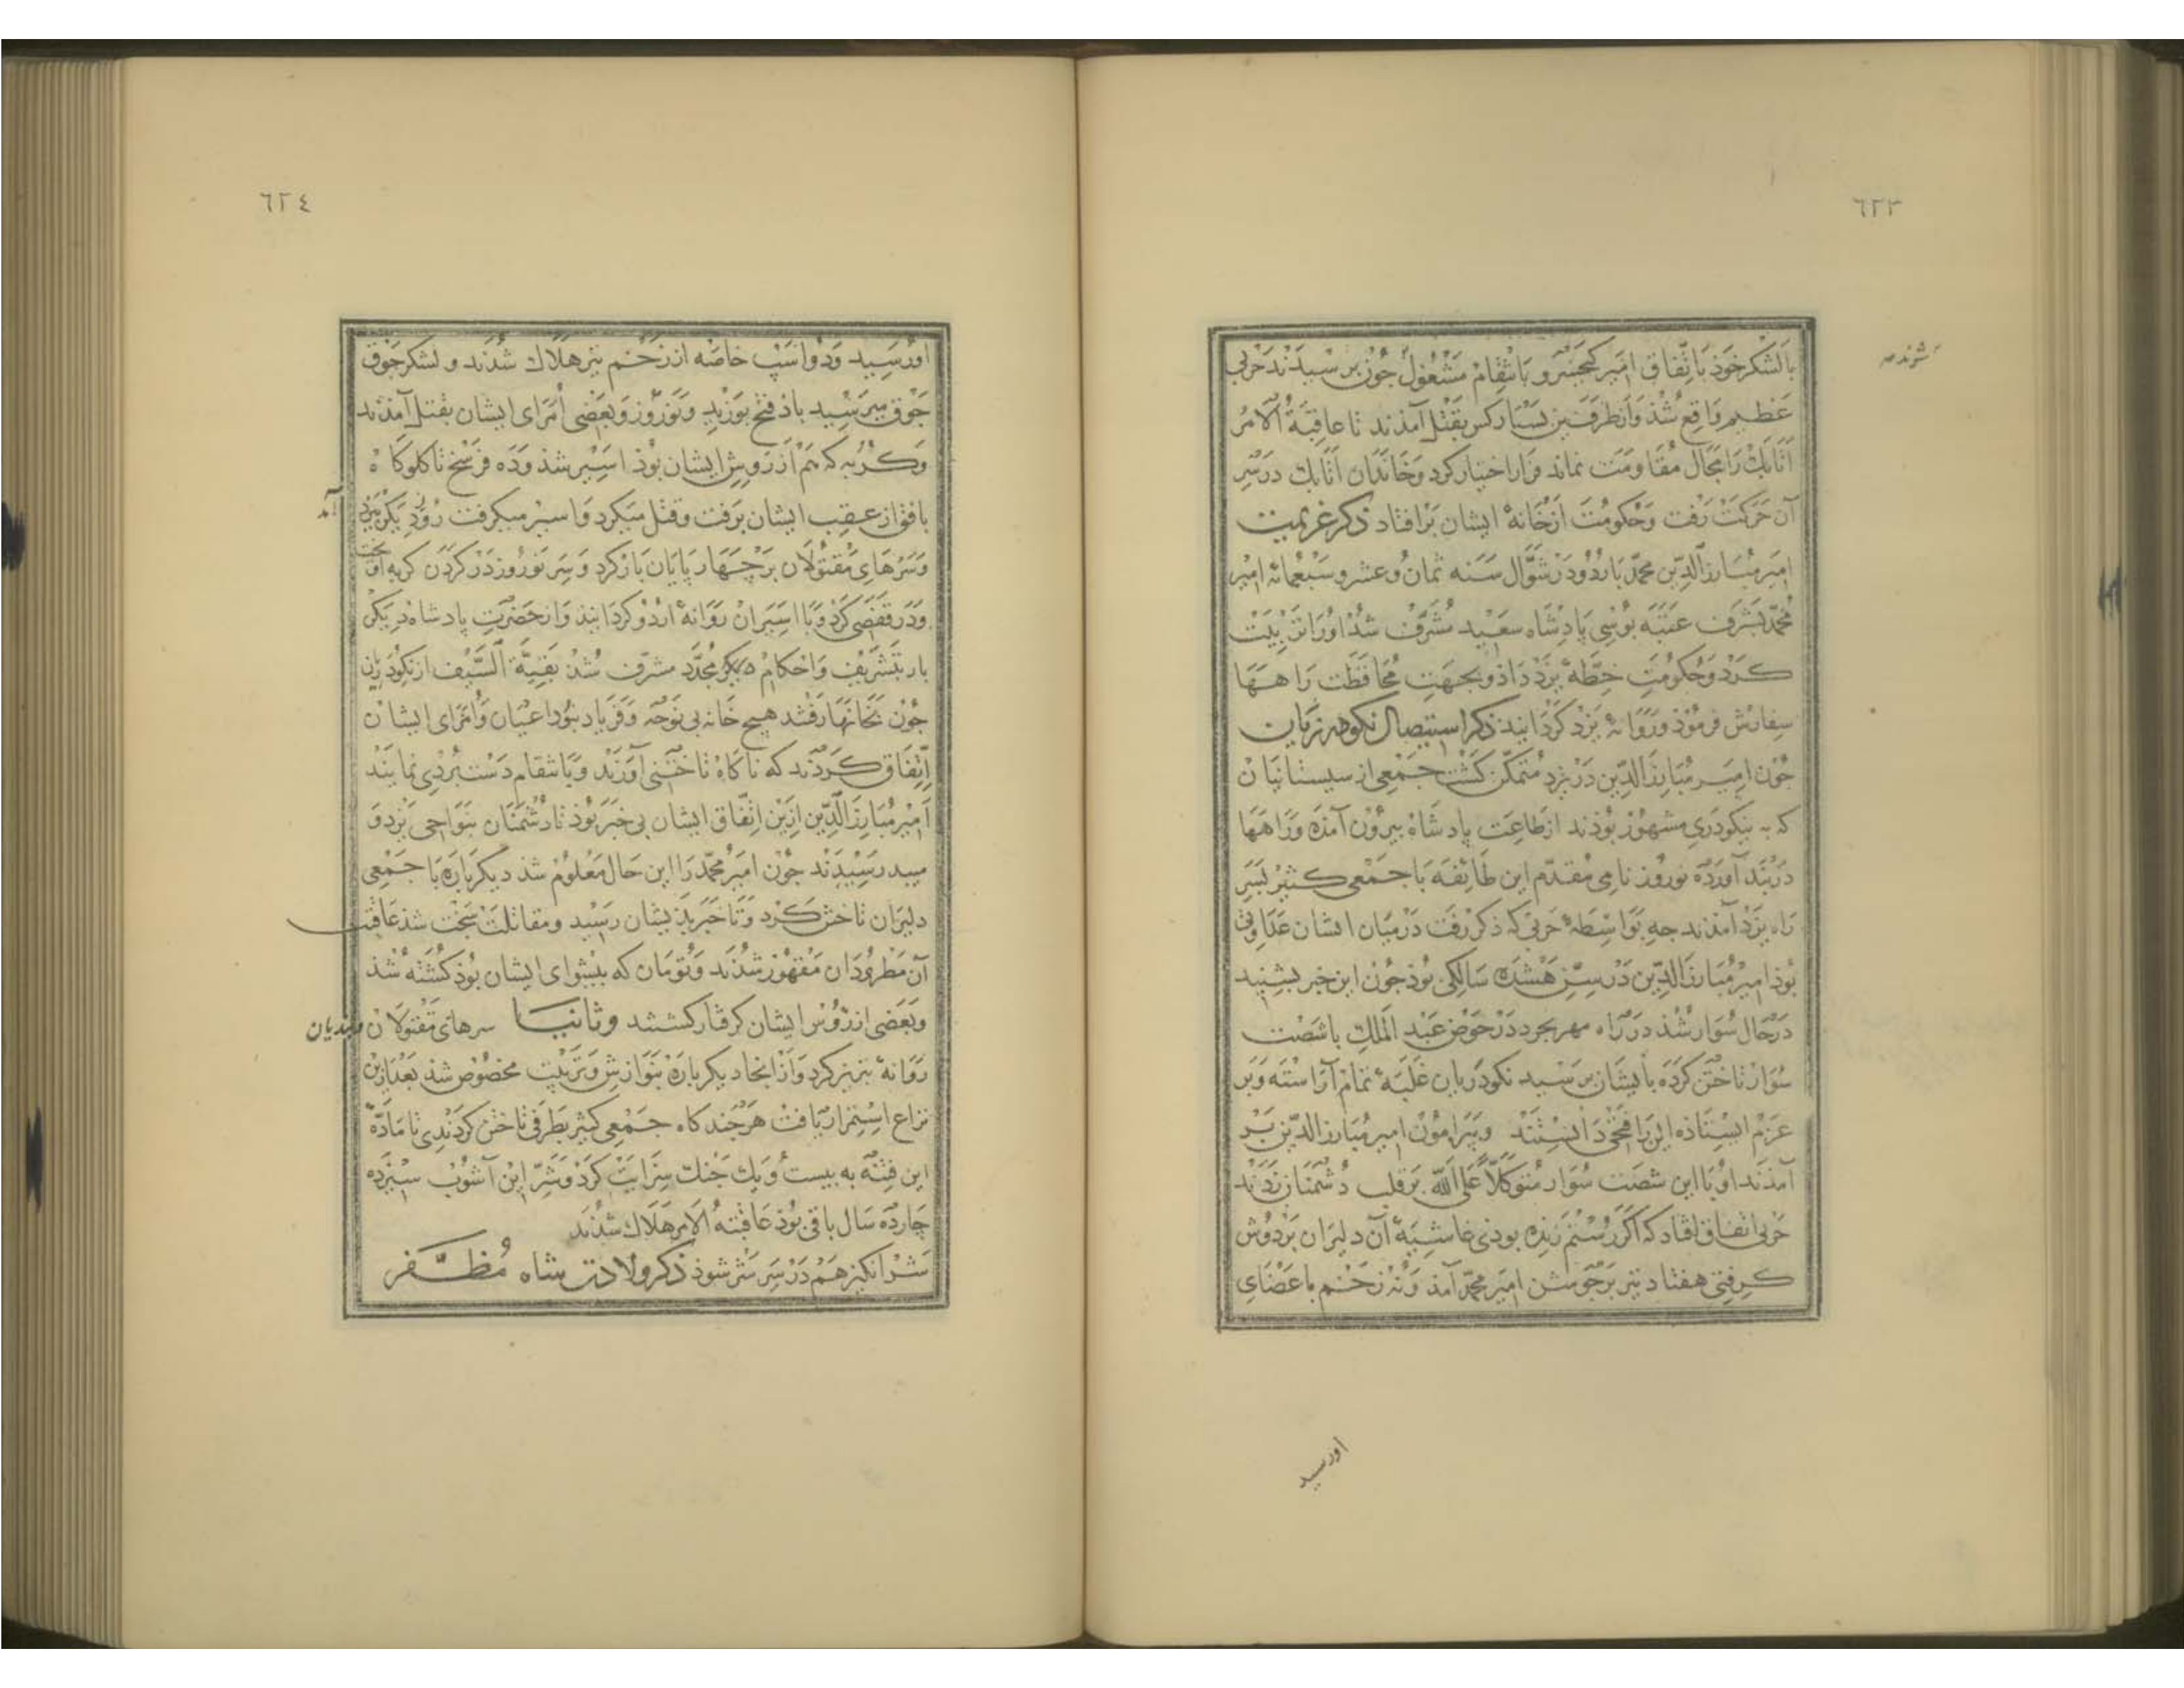 ٦٢٣
شوندہ
با لشکر خوذ باتّفاق امیر کیخسرو بانتقام مشغول جون برسیدند حربی
عظیم واقع شذ و از طرفین بسیار کس بقتل آمذند تا عاقبة الامر
اتابك را مجال مقاومت نماند فرار اختیار کرد و خاندان اتابك در سر
آن حرکت رفت و حکومت از خانهٔ ایشان برافتاد ذکر عزیمت
امیر مبارز الدین محمّد باردو در شوّال سنه ثمان و عشر و سبعمائه امیر
محمّد بشرف عتبه بوسی پادشاه سعید مشرّف شذ اورا تربیت
کرد و حکومت خطّهٔ یزد داذ و بجهت محافظت راهها
سفارش فرموذ و روانهٔ یزد کردانید ذکر استیصال نکودریان
جون امیر مبارز الدین در یزد متمکّن کشت جمعی از سیستانیان
که به نیکودری مشهور بوذند از طاعت پادشاه بیرون آمذه و راهها
دربند آورده نوروز نامی مقدّم این طائفه با جمعی کثیر بسر
راه یزد آمذند جه بواسطهٔ حربی که ذکر رفت در میان ایشان عداوتی
بوذ امیر مبارز الدین در سنّ هشده سالکی بوذ جون این خبر بشنید
در حال سوار شذ در راه مهریجرد در حوض عبد الملك با شصت
سوار تاختن کرده بایشان برسید نکودریان غلبهٔ تمام آراسته و بر
عزم ایستاذه این را فتحی دانستند و پیرامون امیر مبارز الدین بر
آمذند او با این شصت سوار متوکّلاً علی الله بر قلب دشمنان زدند
حربی اتفاق افتاد که اکر رستم زنده بودی غاشیهٔ آن دلیران بر دوش
کرفتی هفتاد تیر بر جوشن امیر محمّد آمذ و نه زخم باعضای
او رسید
٦٢٤
او رسید و دو اسب خاصّه از زخم تیر هلاك شدند و لشکر جوق
جوق میرسید باذ فتح بوزید و نوروز و بعضی امرای ایشان بقتل آمذند
و کربه که هم از روس ایشان بوذ اسیر شذ و ده فرسخ تا کلوکاه
بافق از عقب ایشان برفت و قتل میکرد و اسیر میکرفت روز دیکر بیزد
آمد
و سرهای مقتولان بر چهارپایان بار کرد و سر نوروز در کردن کربه آویخت
و در قفصی کرد و با اسیران روانهٔ اردو کردانید و از حضرت پادشاه دیکر
بار بتشریف و احکام دیکر مجدّد مشرّف شذ بقیّة السّیف از نکودریان
جون بخانها رفتند هیچ خانه بی نوحه و فریاد نبود اعیان و امرای ایشان
اتّفاق کردند که ناکاه تاختنی آورند و بانتقام دست بردی نمایند
امیر مبارز الدّین ازین اتّفاق ایشان بی خبر بوذ تا دشمنان بنواحی یزد و
میبد رسیدند جون امیر محمّد را این حال معلوم شد دیکر باره با جمعی
دلیران تاختن کرد و تا خبر بذیشان رسید و مقاتلت سخت شد عاقبت
آن مطرودان مقهور شدند و تومان که پیشوای ایشان بوذ کشته شذ
و بعضی از رؤس ایشان کرفتار کشتند و ثانیا سرهای مقتولان و بندیان
روانهٔ تبریز کرد و از انجا دیکر باره بنوازش و تربیت مخصوص شذ بعد ازین
نزاع استمرار یافت هر جند کاه جمعی کثیر بطرفی تاختن کردندی تا مادّهٔ
این فتنه به بیست و یك جنك سرایت کرد و شرّ این آشوب سیزده
چارده سال باقی بوذ عاقبة الامر هلاك شدند
شر انکیز هم در سر شر شوذ ذکر ولادت شاه مُظفّر